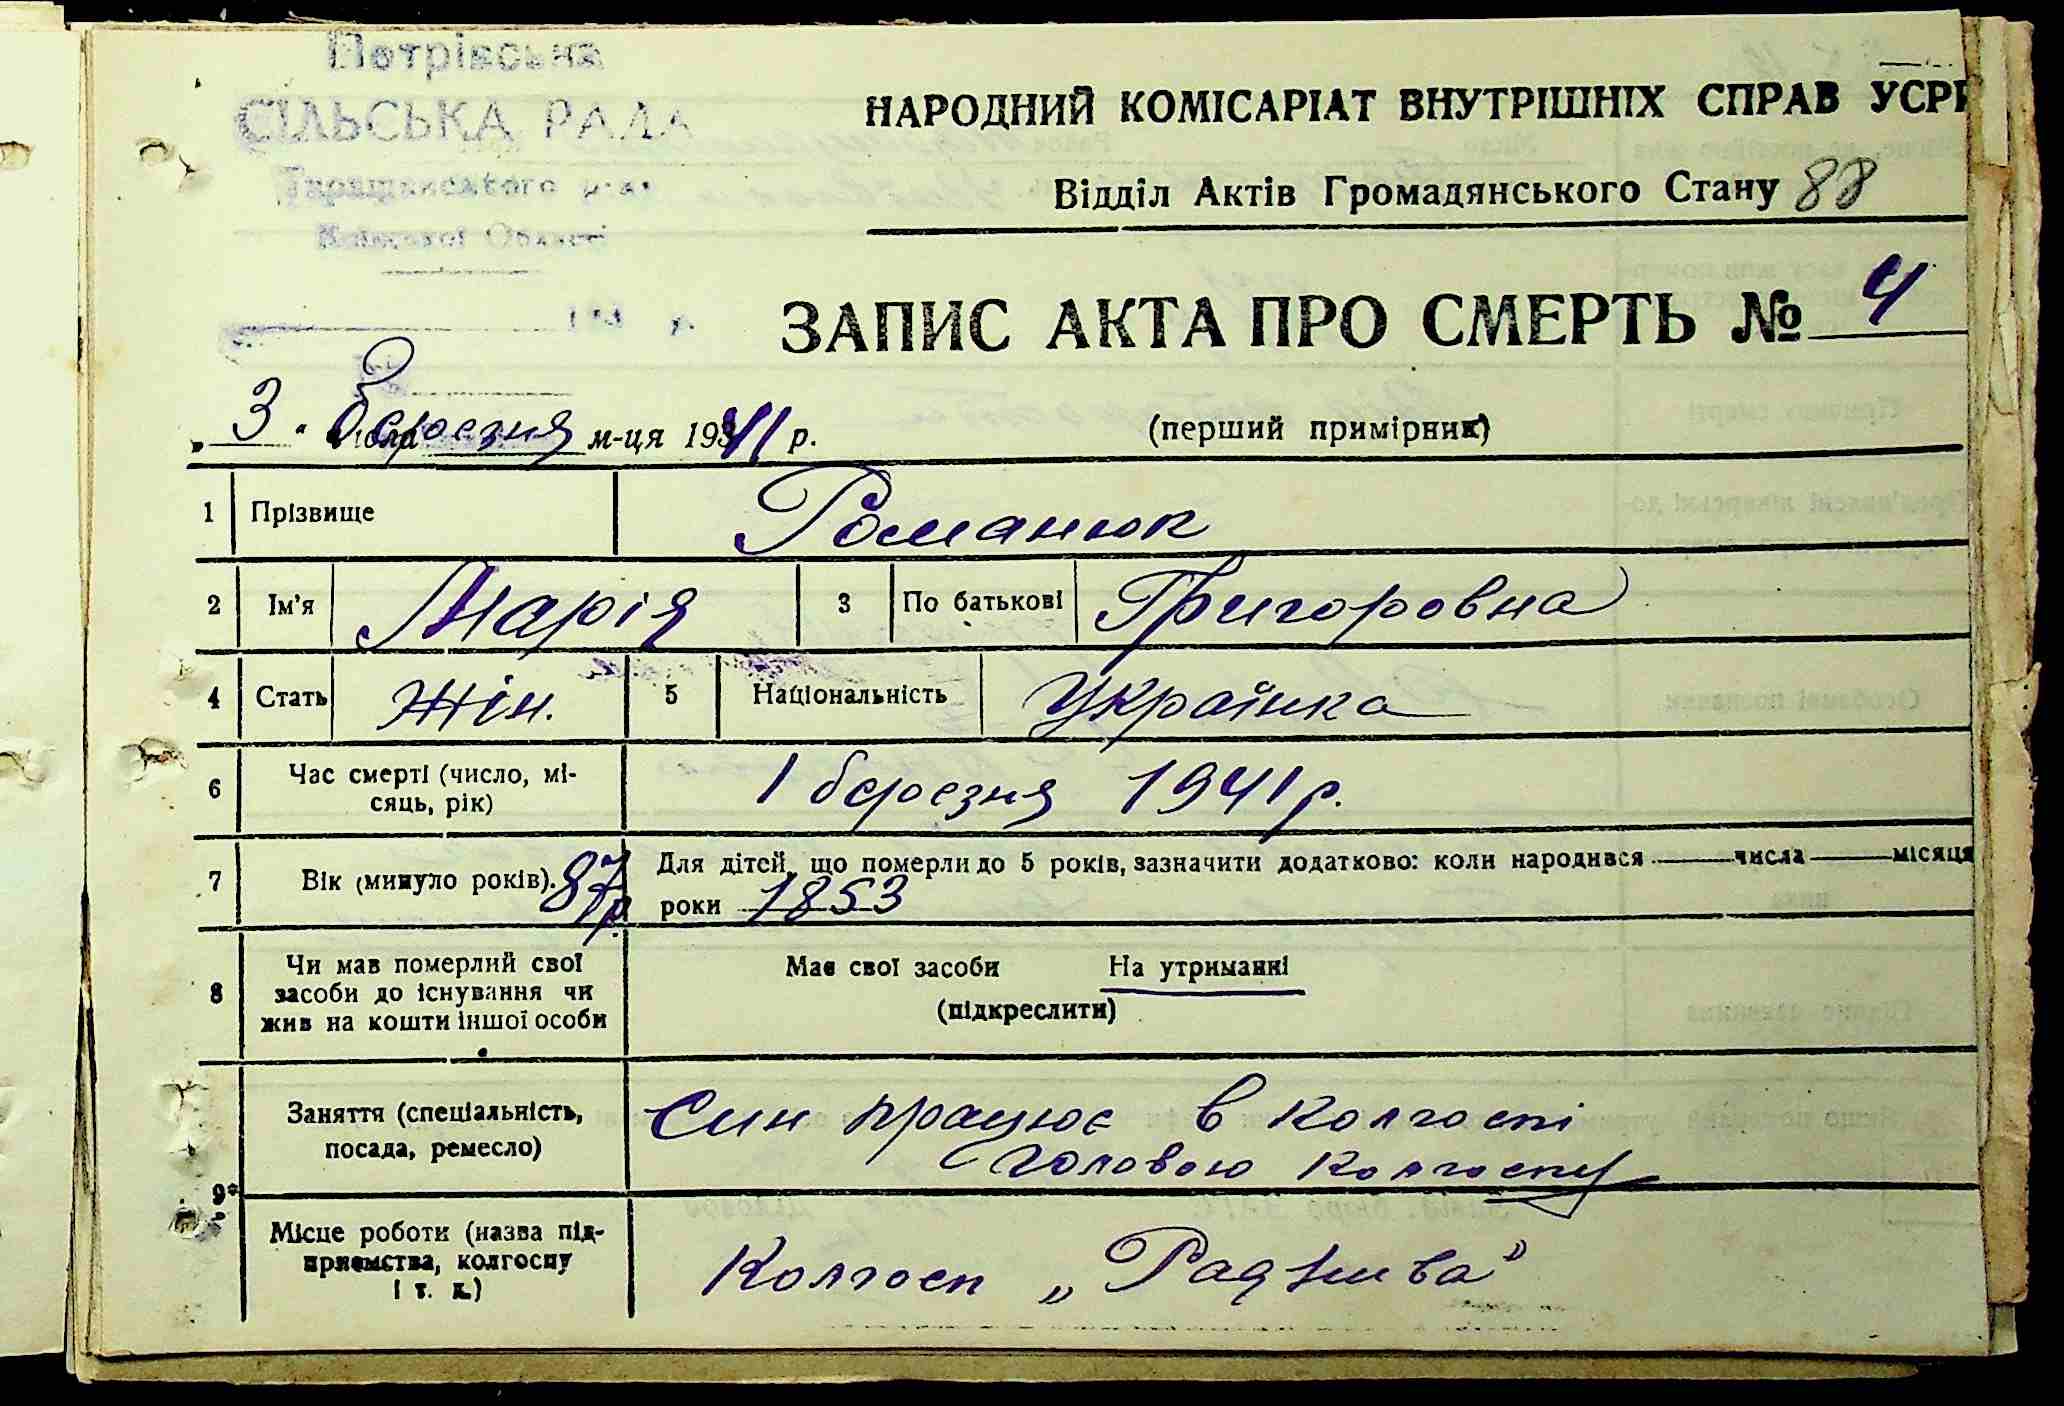 Петрівська
СІЛЬСЬКА РАДА
Таращанського р-ну
Київської Області
193 р.
НАРОДНИЙ КОМІСАРІАТ ВНУТРІШНІХ СПРАВ УСРР
Відділ Актів Громадянського Стану 88
ЗАПИС АКТА ПРО СМЕРТЬ № 4
„ 3 “ числа березня м-ця 1941 р. (перший примірник)
1 Прізвище Романюк
2 Ім'я Марія 3 По батькові Григоровна
4 Стать жін. 5 Національність Українка
6 Час смерті (число, мі-
сяць, рік) 1 березня 1941 р.
7 Вік (минуло років). 87 р. Для дітей, що померли до 5 років, зазначити додатково: коли народився числа місяця
роки 1853
8 Чи мав померлий свої
засоби до існування чи
жив на кошти іншої особи
Має свої засоби На утриманні
(підкреслити)
9* Заняття (спеціальність,
посада, ремесло)
Син працює в колгоспі
головою колгоспу
Місце роботи (назва під-
приємства, колгоспу
і т. д.)
Колгосп „Рад нива"